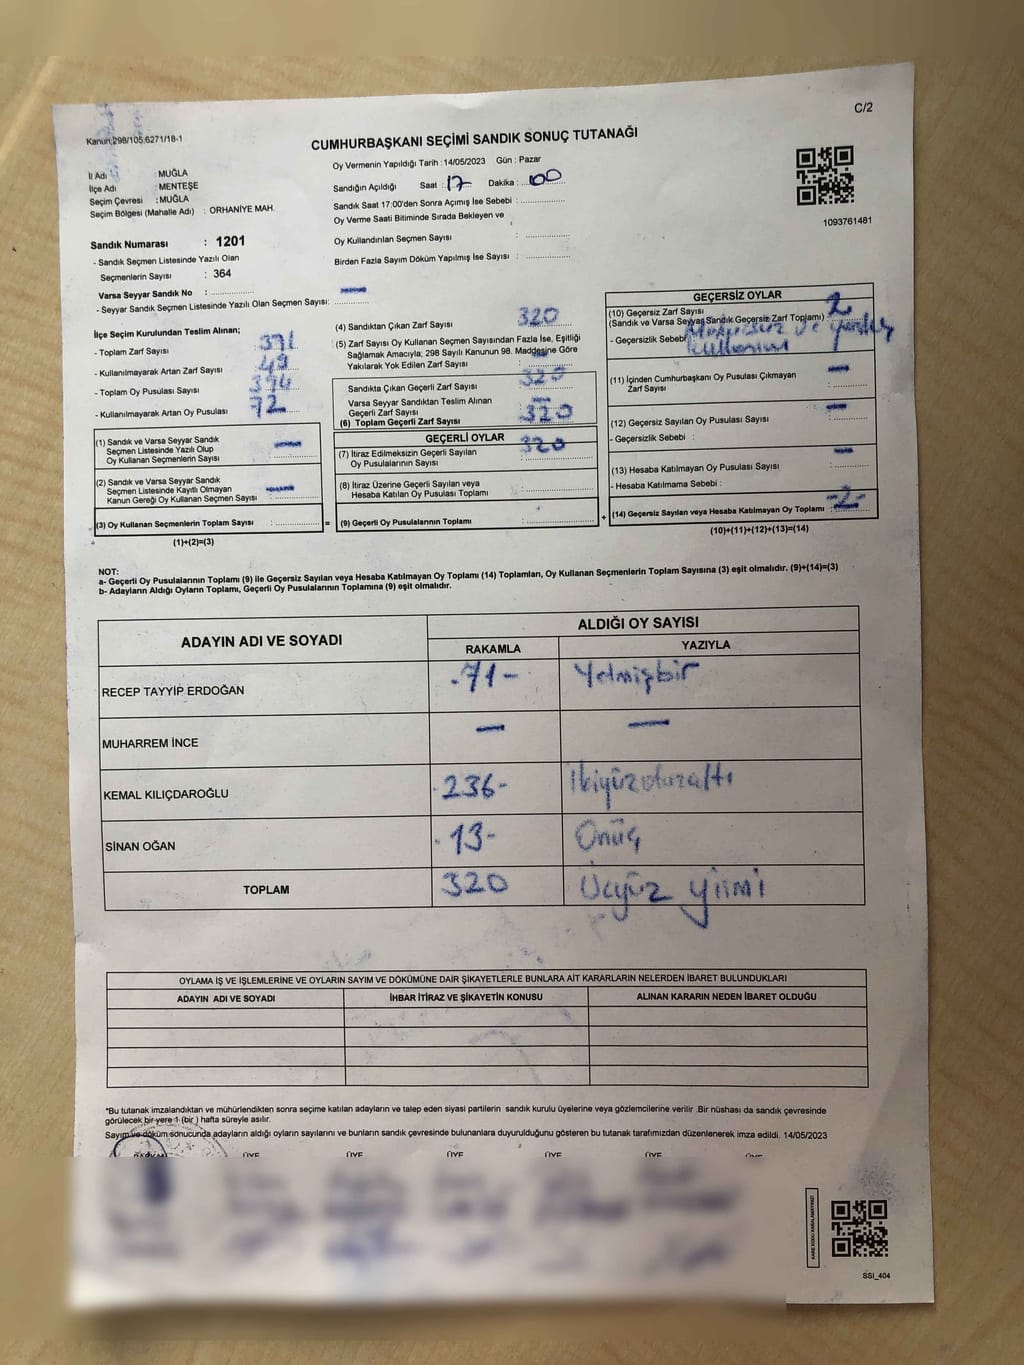 C/2
Kanun;298/105,6271/18-1
CUMHURBAŞKANI SEÇİMİ SANDIK SONUÇ TUTANAĞI
İl Adı : MUĞLA
İlçe Adı : MENTEŞE
Seçim Çevresi : MUĞLA
Seçim Bölgesi (Mahalle Adı) : ORHANİYE MAH.
Oy Vermenin Yapıldığı Tarih :14/05/2023 Gün : Pazar
Sandığın Açıldığı Saat : 17 Dakika : 00
Sandık Saat 17:00'den Sonra Açımış İse Sebebi :
Oy Verme Saati Bitiminde Sırada Bekleyen ve
Oy Kullandırılan Seçmen Sayısı :
Birden Fazla Sayım Döküm Yapılmış İse Sayısı :
1093761481
Sandık Numarası : 1201
- Sandık Seçmen Listesinde Yazılı Olan
Seçmenlerin Sayısı : 364
Varsa Seyyar Sandık No : —
- Seyyar Sandık Seçmen Listesinde Yazılı Olan Seçmen Sayısı:
İlçe Seçim Kurulundan Teslim Alınan;
- Toplam Zarf Sayısı : 371
- Kullanılmayarak Artan Zarf Sayısı : 49
- Toplam Oy Pusulası Sayısı : 394
- Kullanılmayarak Artan Oy Pusulası : 72
(1) Sandık ve Varsa Seyyar Sandık
Seçmen Listesinde Yazılı Olup
Oy Kullanan Seçmenlerin Sayısı : —
(2) Sandık ve Varsa Seyyar Sandık
Seçmen Listesinde Kayıtlı Olmayan
Kanun Gereği Oy Kullanan Seçmen Sayısı : —
(3) Oy Kullanan Seçmenlerin Toplam Sayısı : =
(1)+(2)=(3)
(4) Sandıktan Çıkan Zarf Sayısı : 320
(5) Zarf Sayısı Oy Kullanan Seçmen Sayısından Fazla İse, Eşitliği
Sağlamak Amacıyla; 298 Sayılı Kanunun 98. Maddesine Göre
Yakılarak Yok Edilen Zarf Sayısı : —
Sandıkta Çıkan Geçerli Zarf Sayısı : 320
Varsa Seyyar Sandıktan Teslim Alınan
Geçerli Zarf Sayısı : —
(6) Toplam Geçerli Zarf Sayısı : 320
GEÇERLİ OYLAR
(7) İtiraz Edilmeksizin Geçerli Sayılan
Oy Pusulalarının Sayısı : 320
(8) İtiraz Üzerine Geçerli Sayılan veya
Hesaba Katılan Oy Pusulası Toplamı :
(9) Geçerli Oy Pusulalarının Toplamı : +
GEÇERSİZ OYLAR
(10) Geçersiz Zarf Sayısı : 2
(Sandık ve Varsa Seyyar Sandık Geçersiz Zarf Toplamı)
- Geçersizlik Sebebi
(11) İçinden Cumhurbaşkanı Oy Pusulası Çıkmayan
Zarf Sayısı : —
(12) Geçersiz Sayılan Oy Pusulası Sayısı : —
- Geçersizlik Sebebi :
(13) Hesaba Katılmayan Oy Pusulası Sayısı : —
- Hesaba Katılmama Sebebi :
(14) Geçersiz Sayılan veya Hesaba Katılmayan Oy Toplamı : -2-
(10)+(11)+(12)+(13)=(14)
NOT:
a- Geçerli Oy Pusulalarının Toplamı (9) ile Geçersiz Sayılan veya Hesaba Katılmayan Oy Toplamı (14) Toplamları, Oy Kullanan Seçmenlerin Toplam Sayısına (3) eşit olmalıdır. (9)+(14)=(3)
b- Adayların Aldığı Oyların Toplamı, Geçerli Oy Pusulalarının Toplamına (9) eşit olmalıdır.
ADAYIN ADI VE SOYADI ALDIĞI OY SAYISI
RAKAMLA YAZIYLA
RECEP TAYYİP ERDOĞAN -71- Yetmişbir
MUHARREM İNCE — —
KEMAL KILIÇDAROĞLU -236- İkiyüzotuzaltı
SİNAN OĞAN -13- Onüç
TOPLAM 320 Üçyüz yirmi
OYLAMA İŞ VE İŞLEMLERİNE VE OYLARIN SAYIM VE DÖKÜMÜNE DAİR ŞİKAYETLERLE BUNLARA AİT KARARLARIN NELERDEN İBARET BULUNDUKLARI
ADAYIN ADI VE SOYADI İHBAR İTİRAZ VE ŞİKAYETİN KONUSU ALINAN KARARIN NEDEN İBARET OLDUĞU
*Bu tutanak imzalandıktan ve mühürlendikten sonra seçime katılan adayların ve talep eden siyasi partilerin sandık kurulu üyelerine veya gözlemcilerine verilir .Bir nüshası da sandık çevresinde
görülecek bir yere 1 (bir ) hafta süreyle asılır.
Sayım ve döküm sonucunda adayların aldığı oyların sayılarını ve bunların sandık çevresinde bulunanlara duyurulduğunu gösteren bu tutanak tarafımızdan düzenlenerek imza edildi. 14/05/2023
ÜYE ÜYE ÜYE ÜYE ÜYE ÜYE
SSI_404